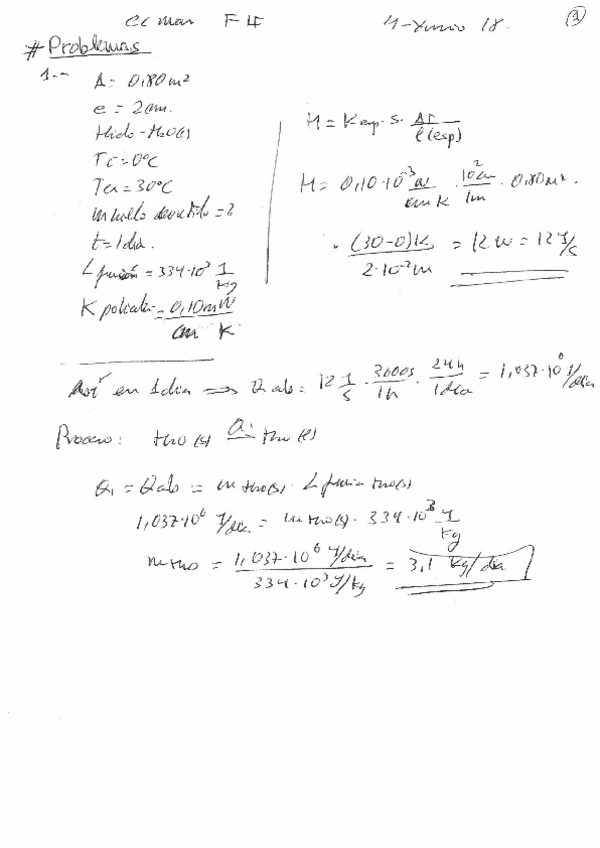 F4 4-Junio 18. 3
# Problemas
1.-
A = 0,80 m²
e = 2 cm.
Hielo - H₂O(s)
Tc = 0°C
Tex = 30°C
m hielo derretido = ?
t = 1 dia.
L fusión = 334·10³ J/kg
K = 0,10 mW / cm K
H = K · S · ΔT / e (esp)
H = 0,10·10⁻³ W / cm K · 10² cm / 1m · 0,80 m² ·
· (30-0)K / 2·10⁻² m = 12 W = 12 J/s
Así en 1 dia ⟹ Q abs = 12 J/s · 3600s / 1h · 24h / 1dia = 1,037·10⁶ J/dia
Proceso: H₂O(s) Q₁→ H₂O(l)
Q₁ = Q abs = m H₂O(s) · L fusión H₂O(s)
1,037·10⁶ J/dia = m H₂O(s) · 334·10³ J/kg
m H₂O = 1,037·10⁶ J/dia / 334·10³ J/kg = 3,1 kg/dia